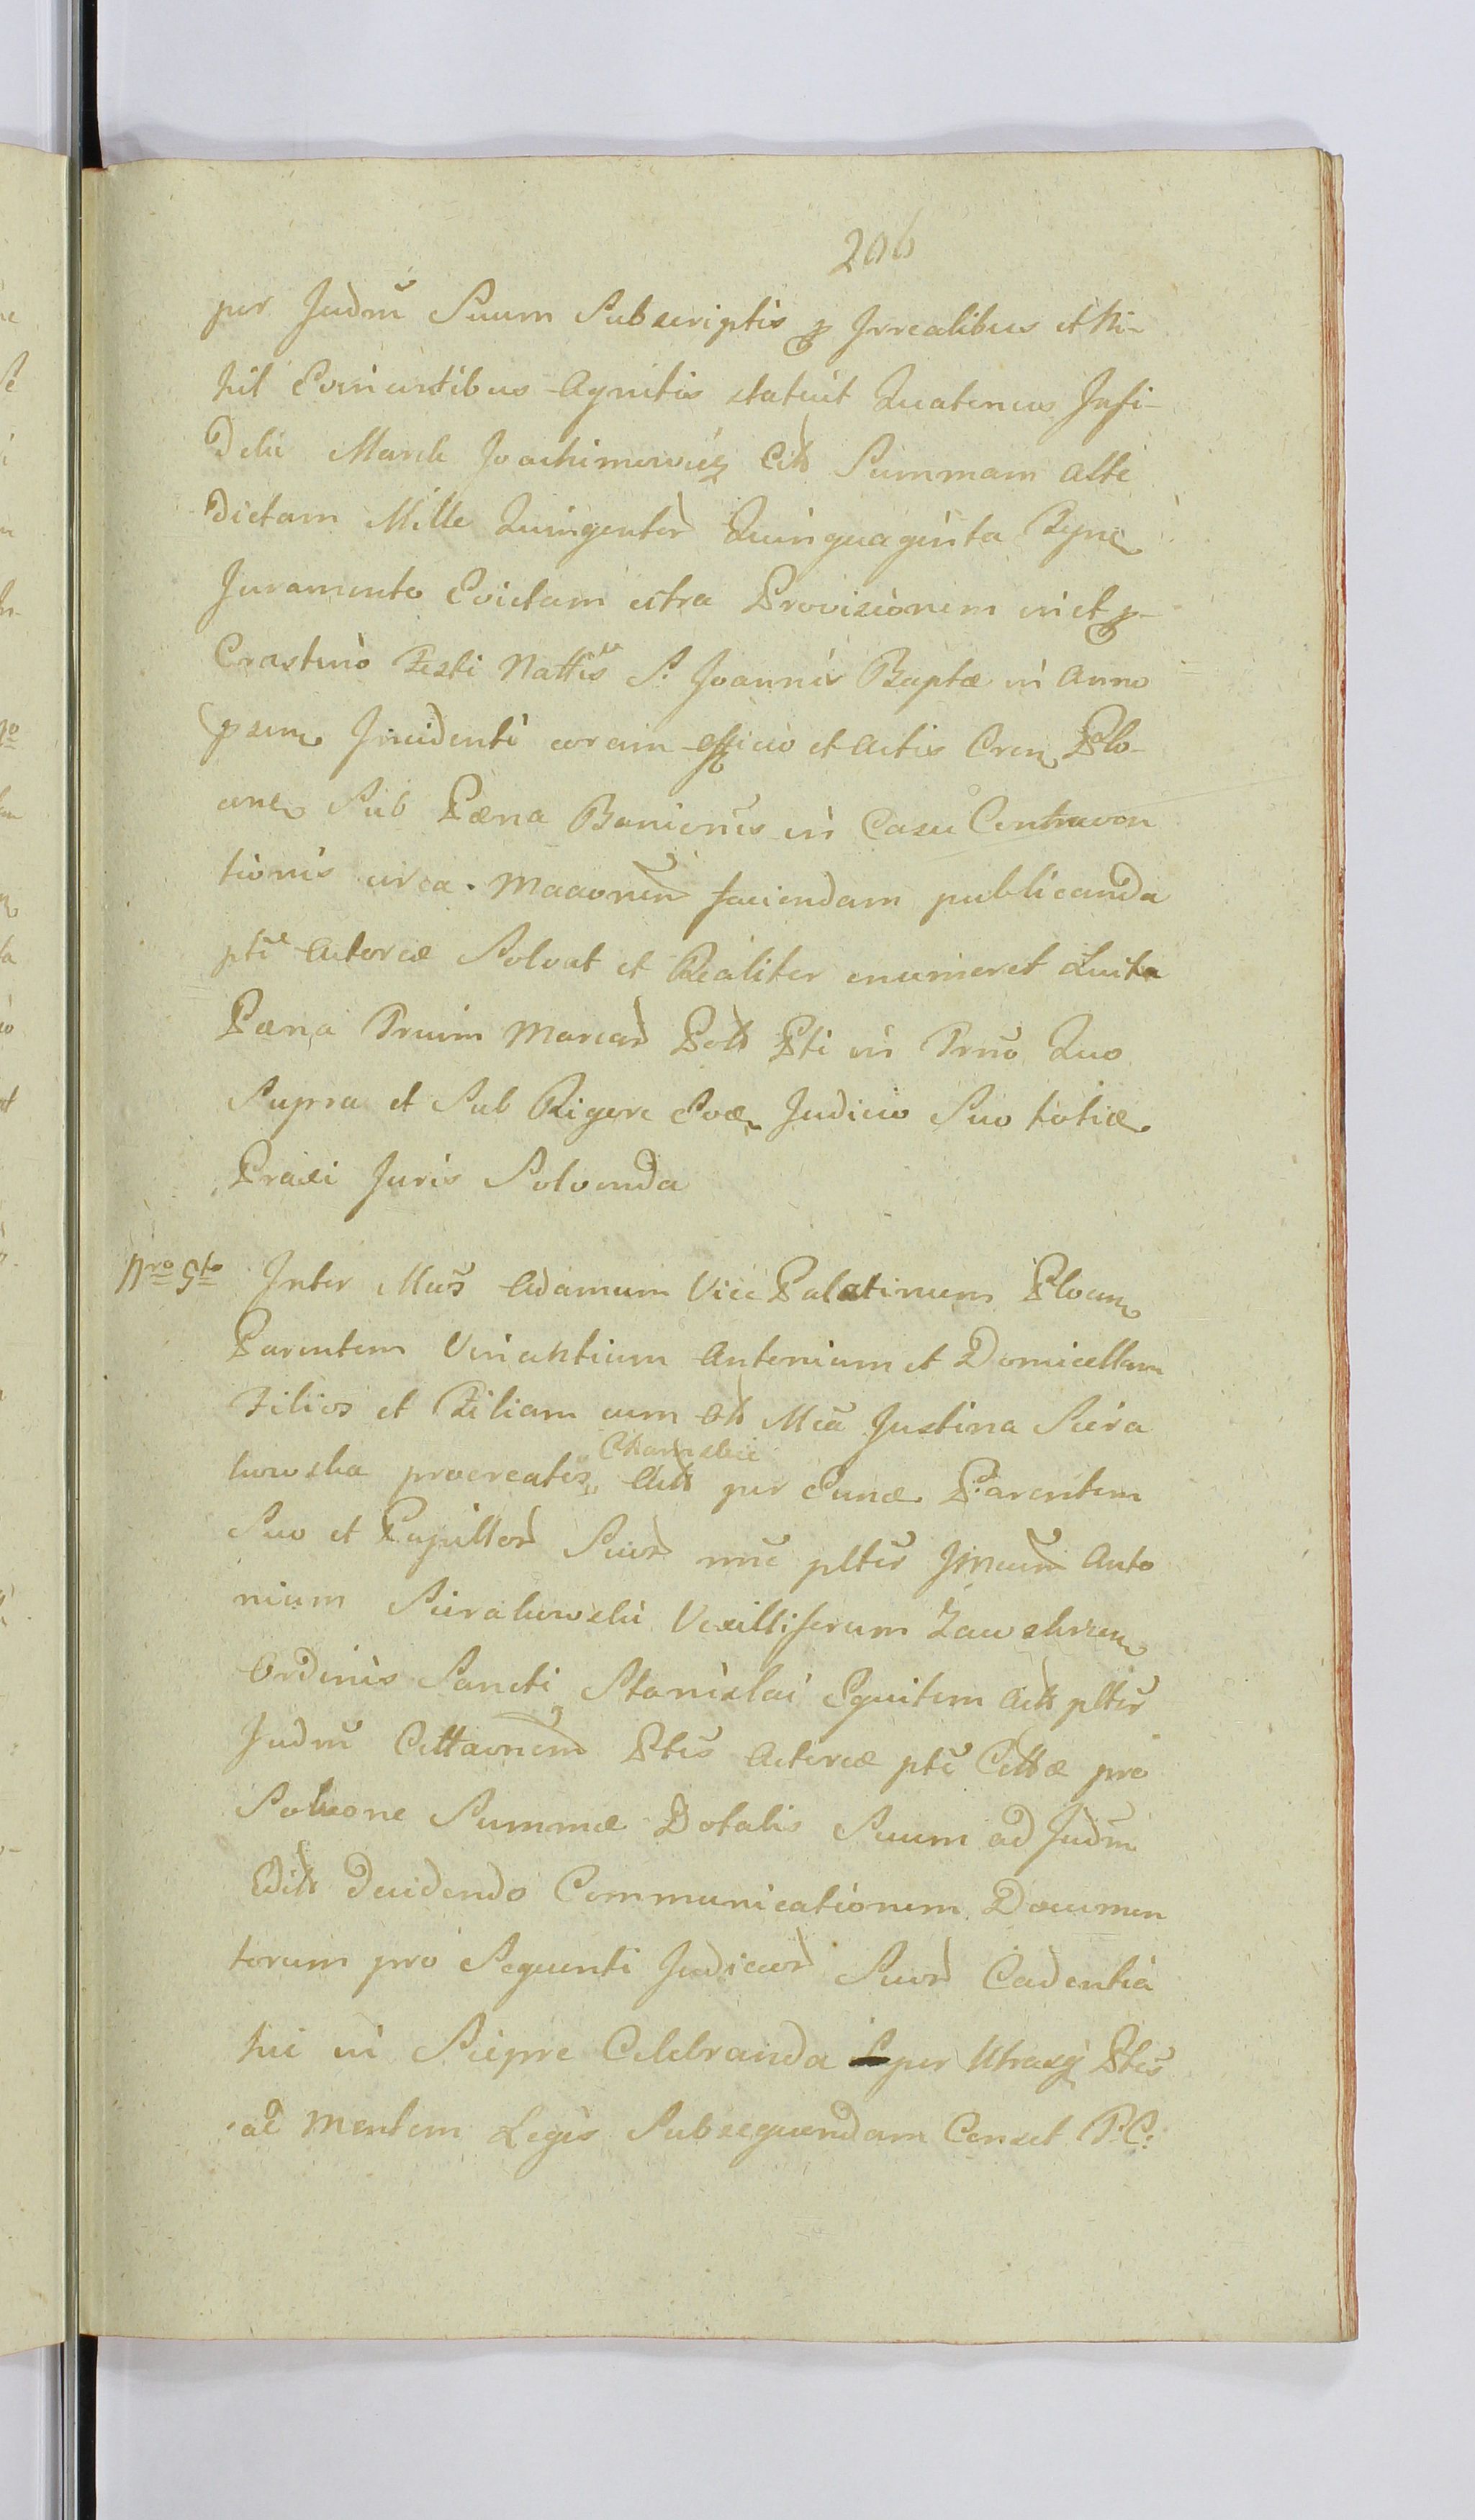 206
per Judm̃ Suum Subscriptis p Irrealibus et Ni-
hil Evincentibus Agnitis statuit Quatenus Infi-
delis Marek Joachimowicz Citt Summam alte
dictam Mille Quingentor Quinquaginta
Juramento Evictam citra Provisionem in et p
Crastino Festi Nattis S. Joannis Baptæ in Anno
Incidenti coram officio et Actis Cren Plo-
cen Sub Pæna Banionis in Casu Contraven
tionis circa faciendam publicanda
ptẽ Actorea Solvat et Realiter enumeret Luita
Pæna Trium Marcar Ptti in Trnõ Quo
Supra et Sub Rigore Judicio Suo totiæ
Praxi Juris Solvenda
Nro 5to Inter Mũs Adamum Vice Palatinum Plocen
Parentem Vincentium Antonium et Domicellam
Filios et Filiam cum Mca Justina Siera
Chamskie
kowska procreatis Actt per Eunde Parentem
Suo et Pupillor Suor nnẽ pltẽr Anto
nium Sierakowski Vexilliferum Zawskrzen
Ordinis Sancti Stanislai Equitem Citt pltẽr
Judm̃ Ptẽs Actorea ptẽ Cittæ pro
Solucone Summæ Dotalis Suum ad Judm̃
Edit Decidendo Communicationem Documen
torum pro Sequenti Judicior Suor Cadentia
hic in Sierpc Celebranda per Utrasq Ptẽs
ad Mentem Legis Subsequendam Censet P.C: